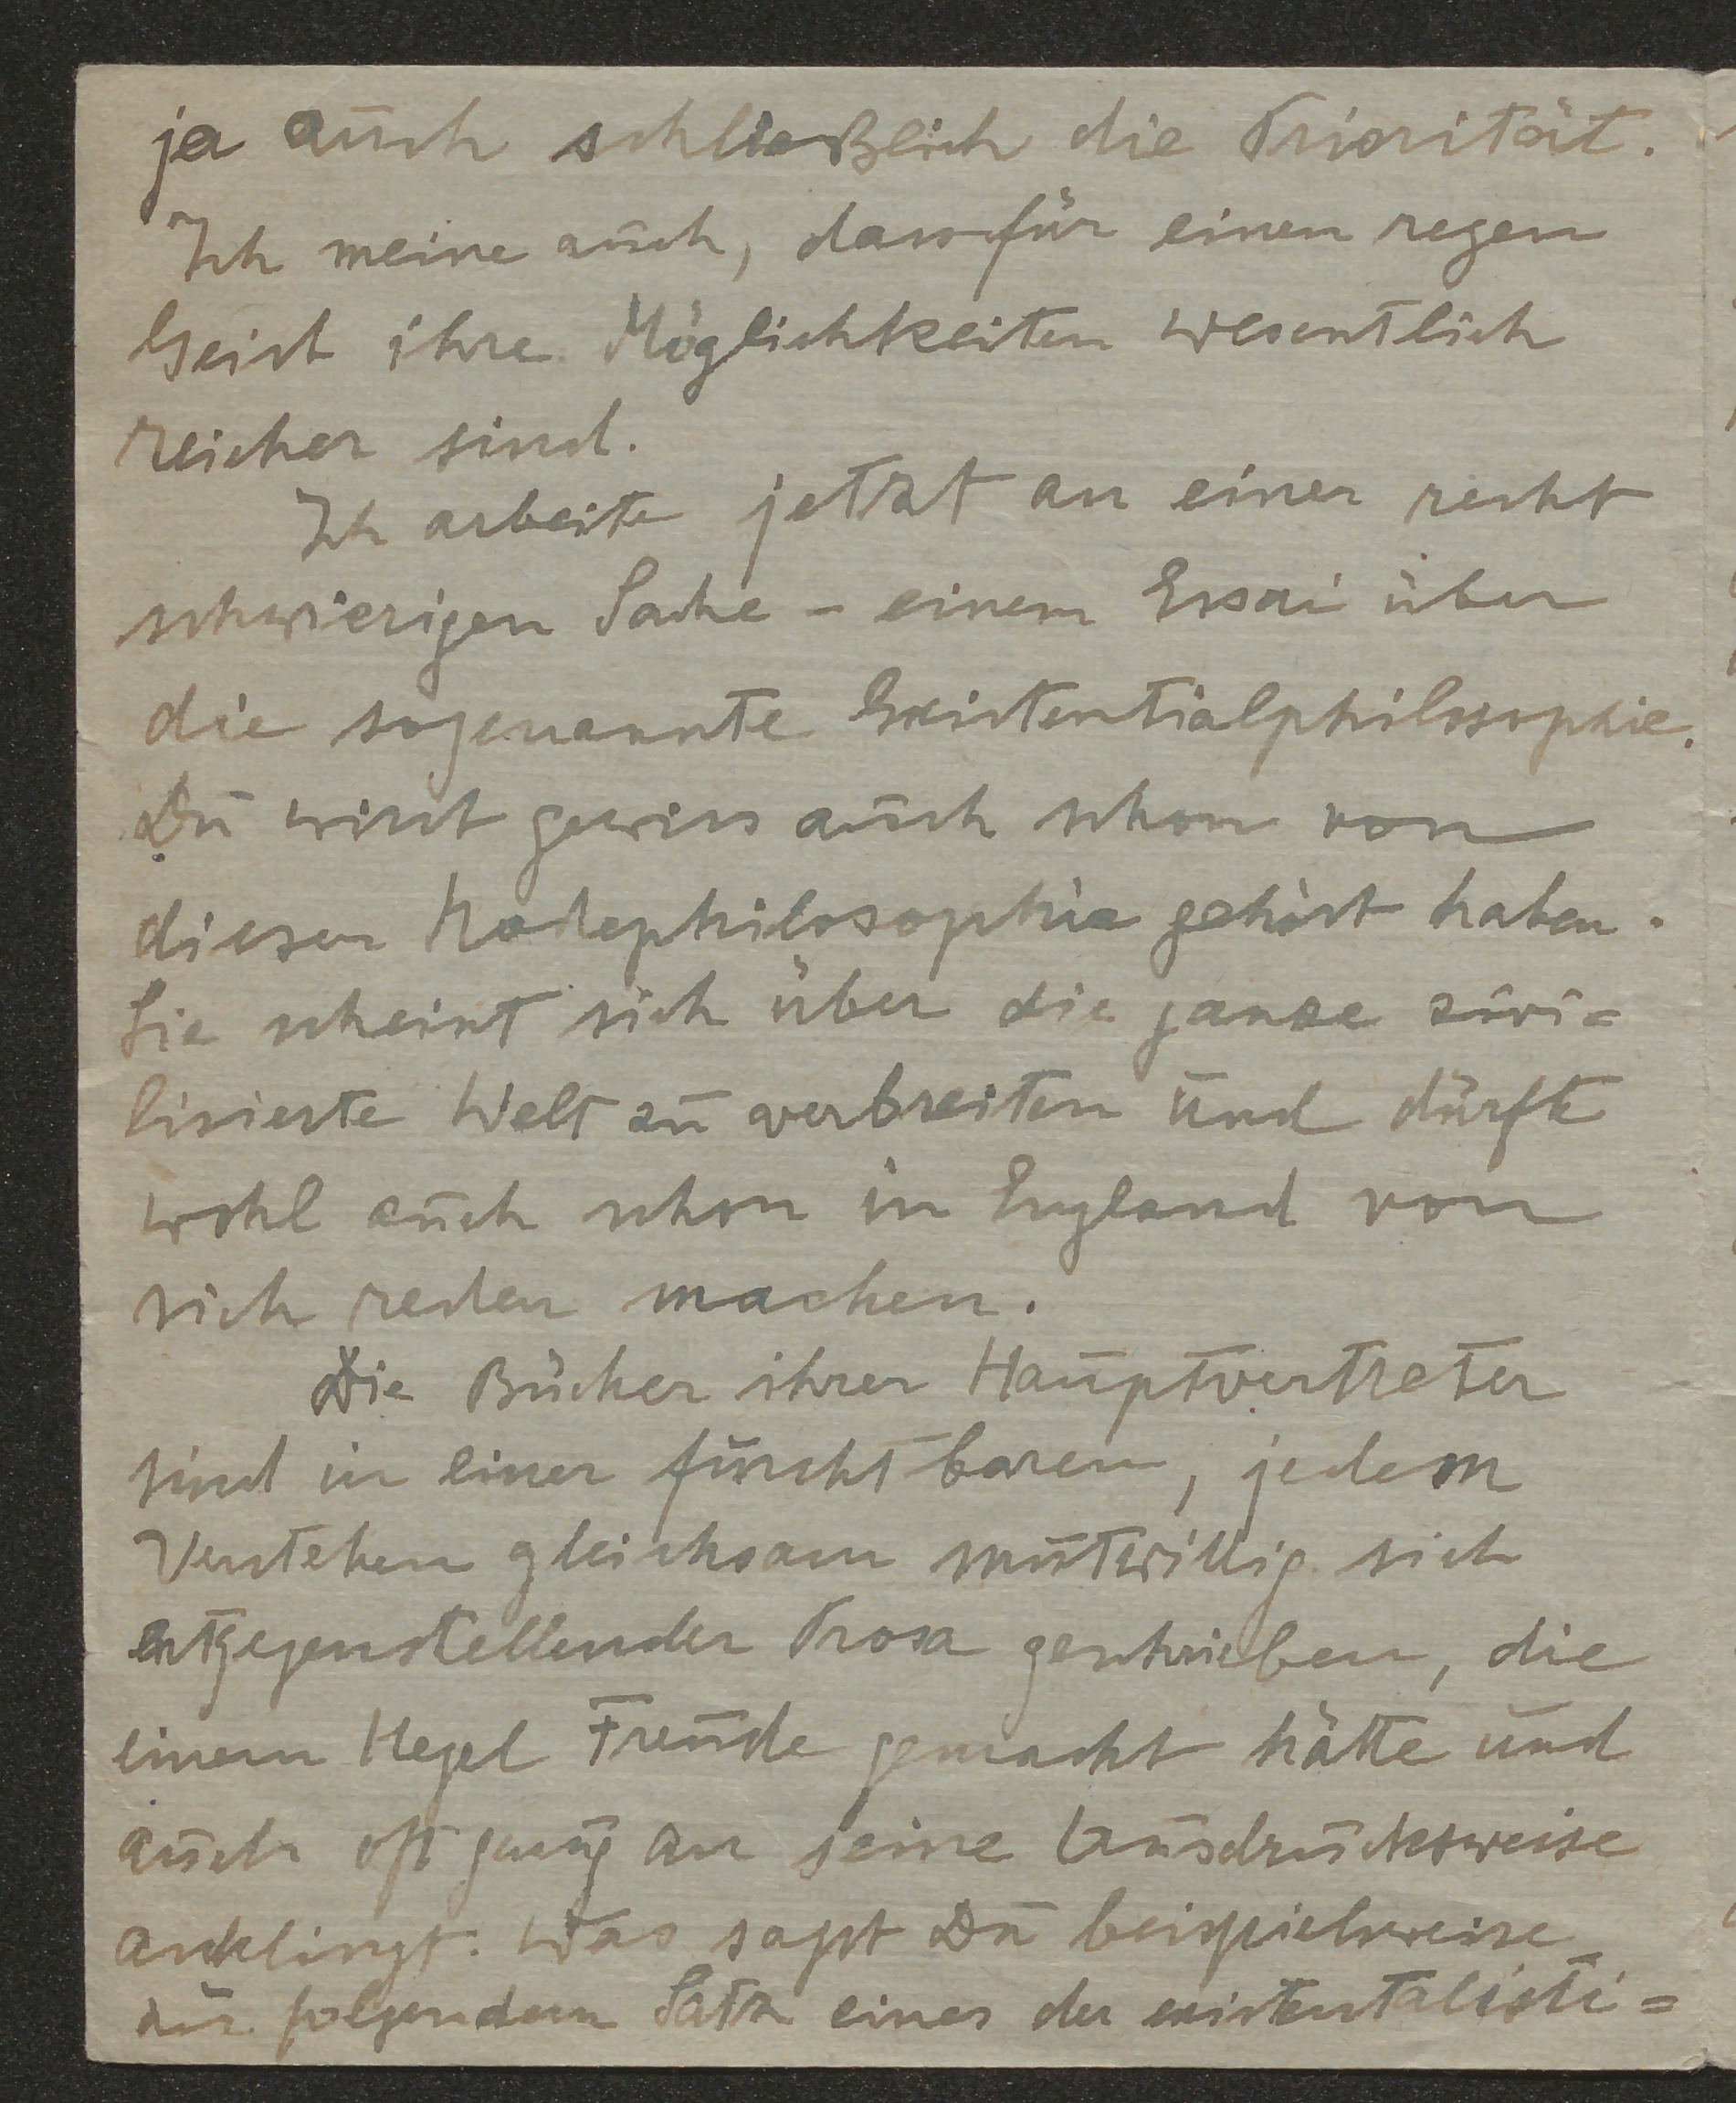 ja auch schließlich die Priorität.
Ich meine auch, dass für einen regen
Geist ihre Möglichkeiten wesentlich
reicher sind.
Ich arbeite jetzt an einer recht
schwierigen Sache - einem Essai über
die sogenannte Existentialphilosophie.
Du wirst gewiss auch schon von
dieser Modephilosophie gehört haben.
Sie scheint sich über die ganze zivi=
lisierte Welt zu verbreiten und dürfte
wohl auch schon in England von
sich reden machen.
Die Bücher ihrer Hauptvertreter
sind in einer furchtbaren, jedem
Verstehen gleichsam mutwillig sich
entgegenstellender Prosa geschrieben, die
einem Hegel Freude gemacht hätte und
auch oft genug an seine Ausdrucksweise
anklingt. Was sagst Du beispielsweise
zu folgendem Satz eines der existentalisti=